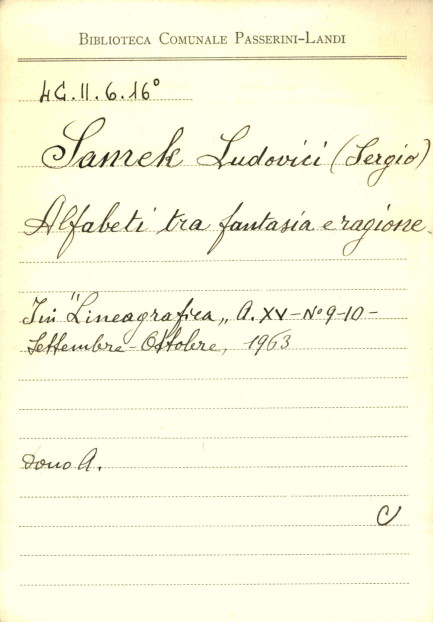 BIBLIOTECA COMUNALE PASSERINI-LANDI
4G.II.6.16°
Samek Ludovici (Sergio)
Alfabeti tra fantasia e ragione.
In "Lineagrafica„ A. XV - N° 9-10 -
Settembre - Ottobre, 1963
Dono A.
C